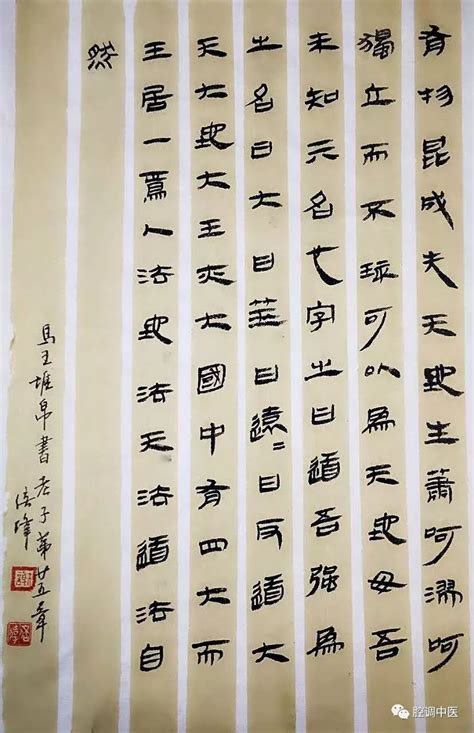 有物昆成先天地生蕭呵漻呵
獨立而不玹可以為天地母吾
未知亓名也字之曰道吾強為
之名曰大曰筮曰遠〻曰反道大
天大地大王亦大國中有四大而
王居一焉人法地法天法道法自
然
馬王堆帛書老子第廿五章
腔调中医